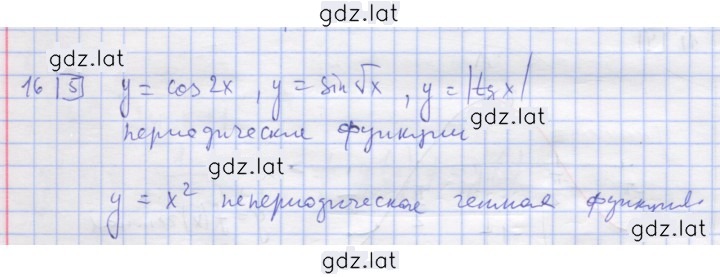 gdz.lat
gdz.lat
16 5 y = cos 2x , y = sin √x , y = |tg x|
gdz.lat
периодические функции
gdz.lat
y = x² непериодическая четная функция
gdz.lat
gdz.lat